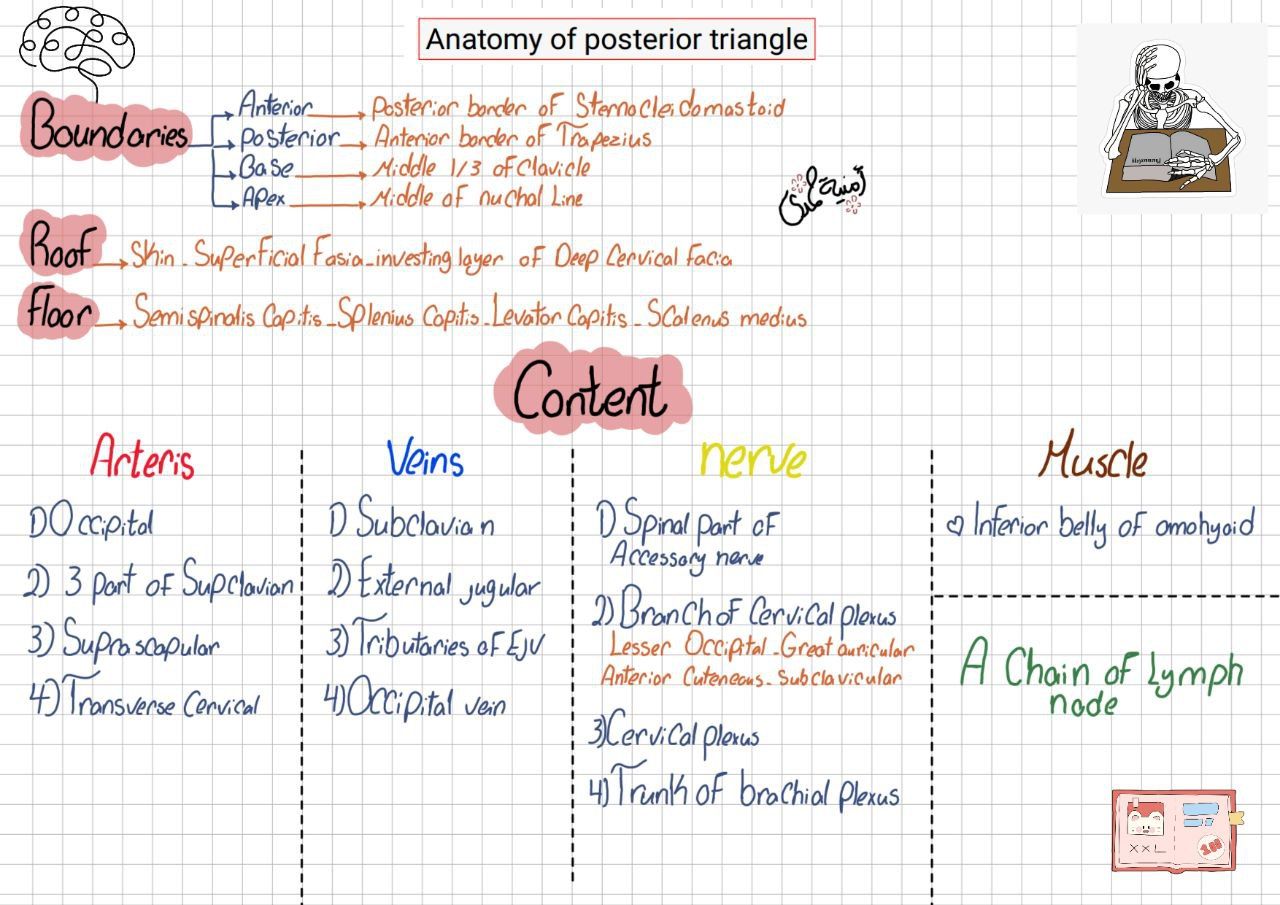 Anatomy of posterior triangle
Boundaries
Anterior → Posterior border of Sternocleidomastoid
Posterior → Anterior border of Trapezius
Base → Middle 1/3 of Clavicle
Apex → Middle of nuchal Line
Roof → Skin - Superficial Fasia - investing layer of Deep Cervical facia
Floor → Semispinalis Capitis - Splenius Capitis - Levator Capitis - Scalenus medius
Content
Arteris
1) Occipital
2) 3 part of Supclavian
3) Suprascapular
4) Transverse Cervical
Veins
1) Subclavian
2) External jugular
3) Tributaries of EJV
4) Occipital vein
nerve
1) Spinal part of
Accessory nerve
2) Branch of Cervical plexus
Lesser Occipital - Great auricular
Anterior Cuteneous - Subclavicular
3) Cervical plexus
4) Trunk of brachial plexus
Muscle
Inferior belly of omohyoid
A Chain of Lymph
node
XXL